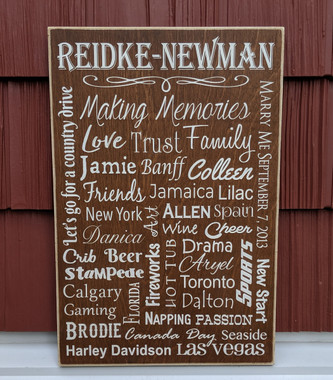 REIDKE-NEWMAN
Let's go for a country drive
Making Memories
Love Trust Family
Jamie Banff Colleen
Friends Jamaica Lilac
Marry Me September 7, 2013
New York Art ALLEN Spain
Danica Wine Cheer
Crib Beer
Stampede
Fireworks
HOT TUB
Drama
Aryel
Sports
New Start
Calgary
Gaming
FLORIDA
Toronto
Dalton
BRODIE NAPPING PASSION
Canada Day Seaside
Harley Davidson Las Vegas